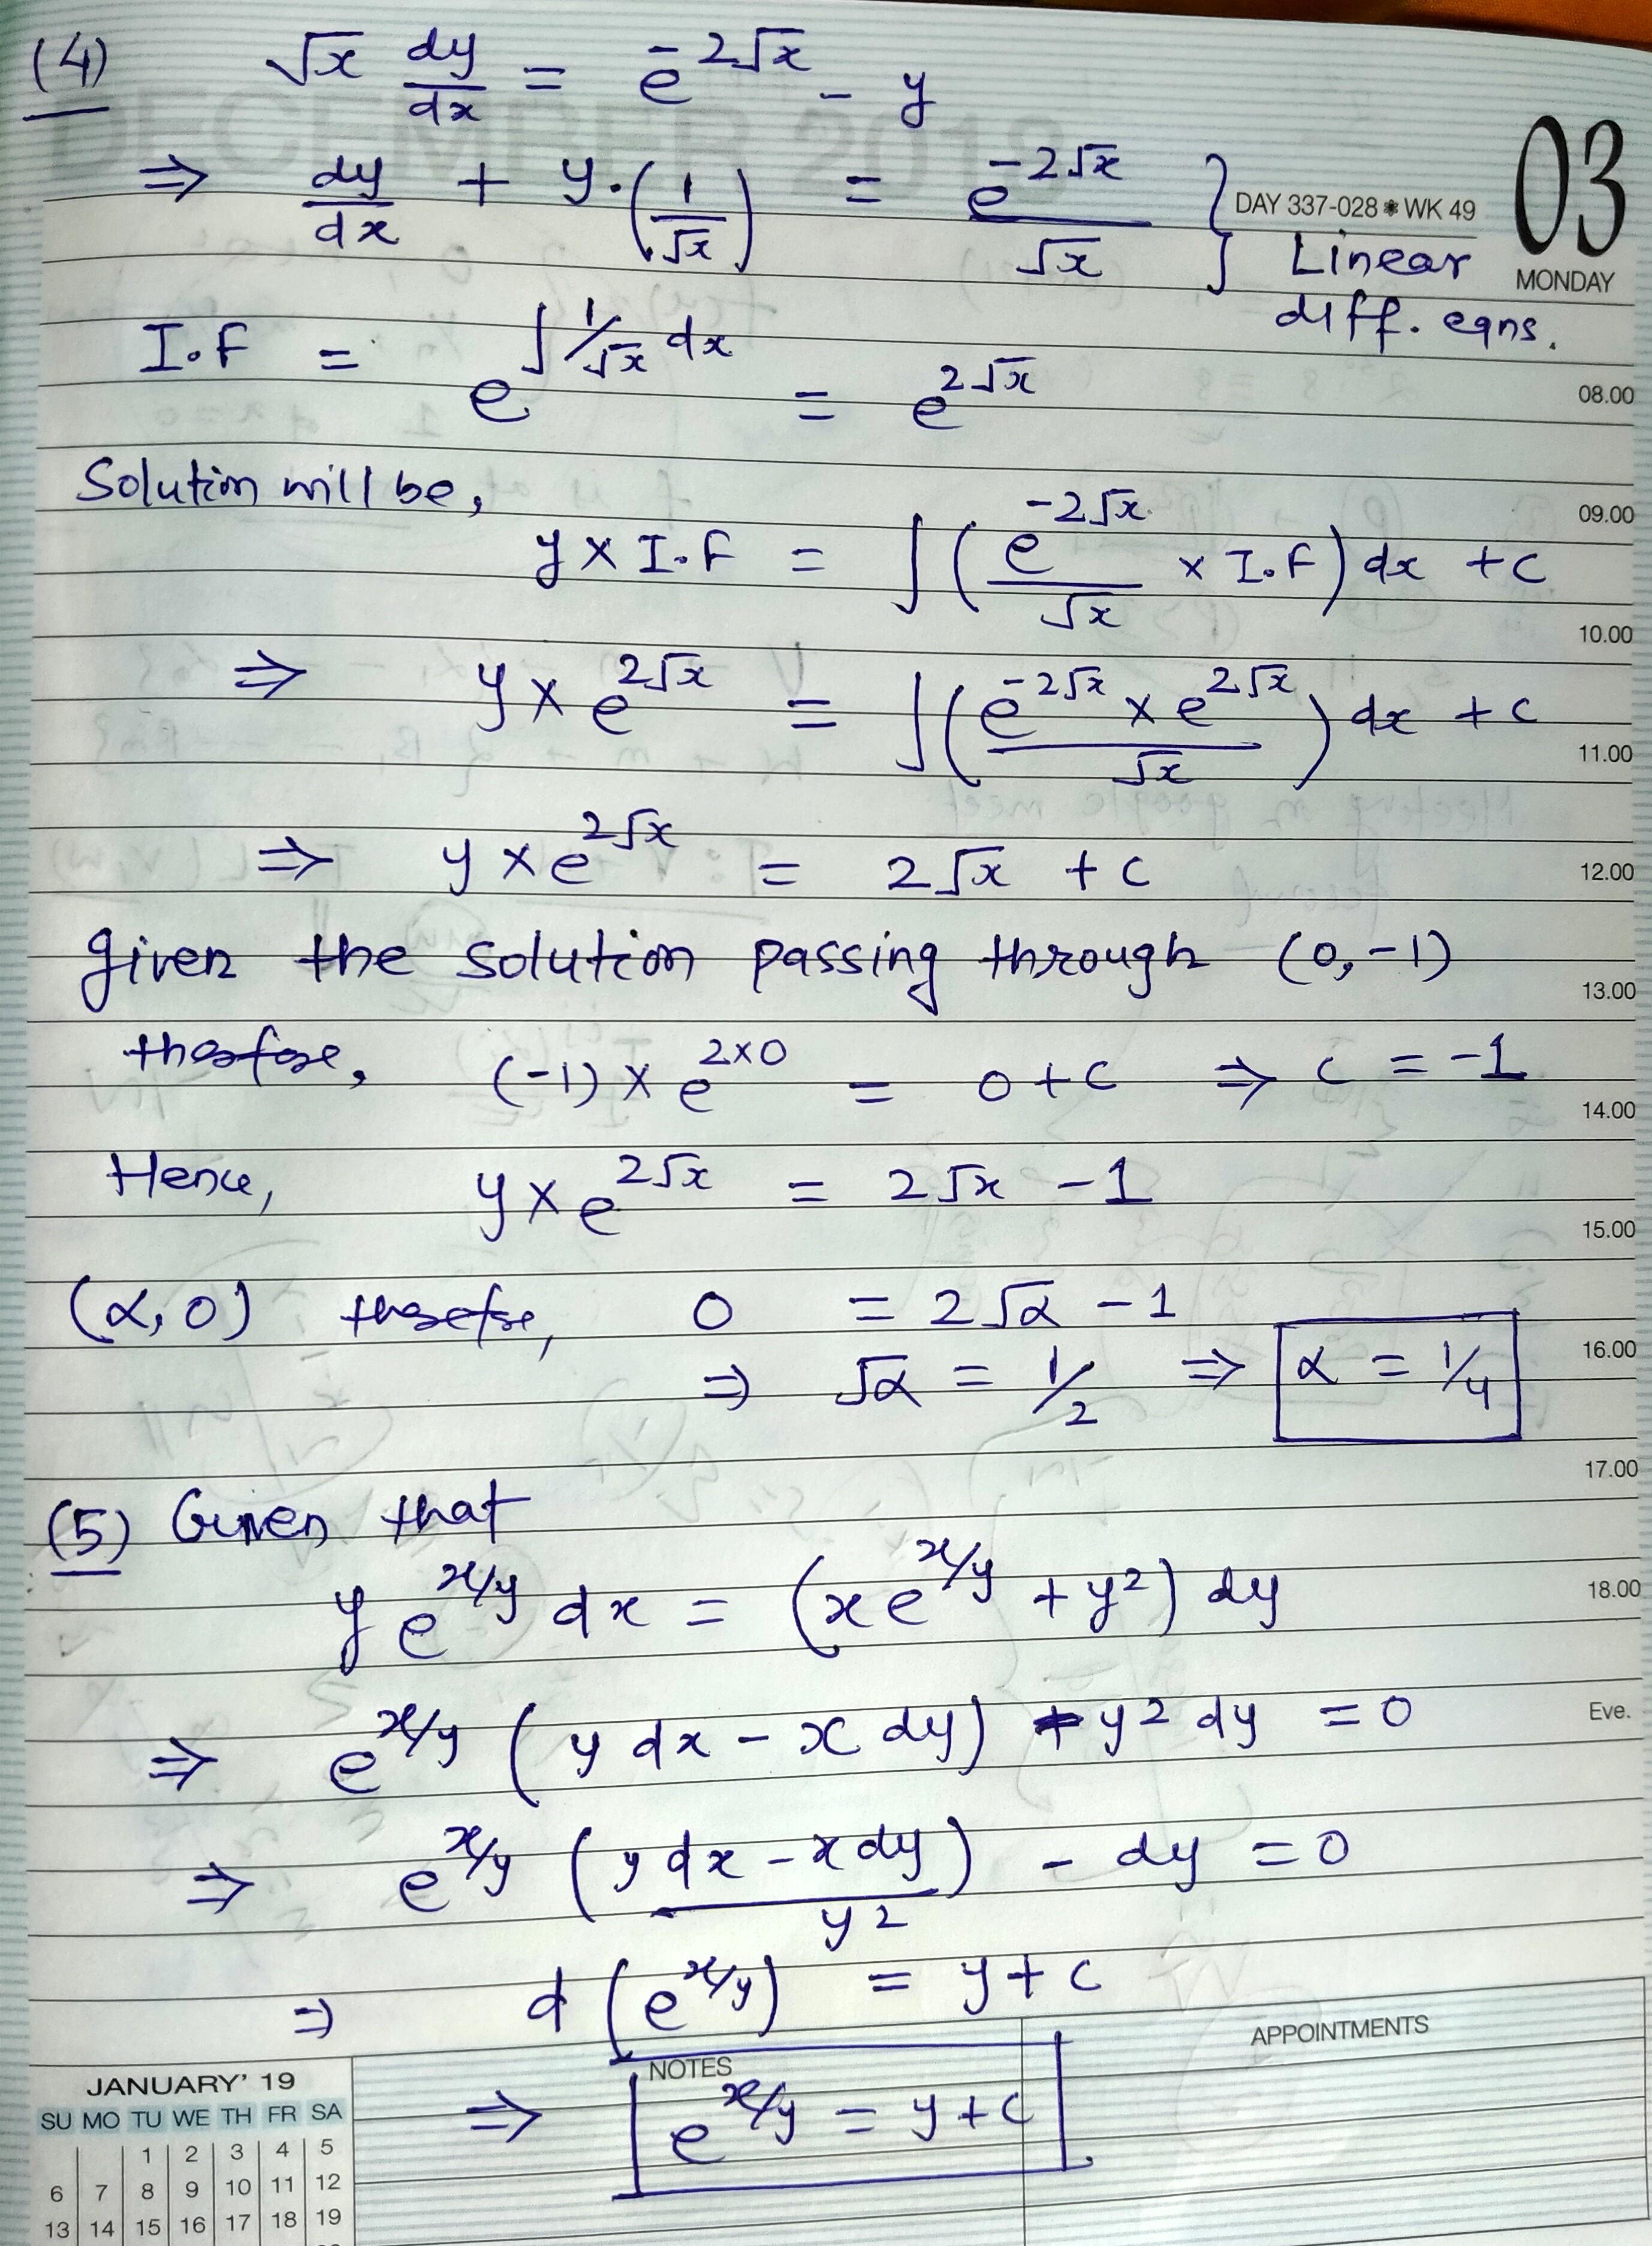 (4) √x dy/dx = e^-2√x - y
DECEMBER 2018
03
MONDAY
DAY 337-028 ✱ WK 49
⇒ dy/dx + y.(1/√x) = e^-2√x/√x } Linear
diff. eqns.
I.F = e^∫1/√x dx = e^2√x
08.00
Solution will be,
09.00
y × I.F = ∫(e^-2√x/√x × I.F) dx + c
10.00
⇒ y × e^2√x = ∫(e^-2√x × e^2√x/√x) dx + c
11.00
⇒ y × e^2√x = 2√x + c
12.00
given the solution passing through (0,-1)
13.00
therefore, (-1) × e^2×0 = 0 + c ⇒ c = -1
14.00
Hence, y × e^2√x = 2√x - 1
15.00
(α,0) therefore, 0 = 2√α - 1
16.00
⇒ √α = 1/2 ⇒ α = 1/4
17.00
(5) Given that
y e^x/y dx = (x e^x/y + y²) dy
18.00
⇒ e^x/y (y dx - x dy) - y² dy = 0
Eve.
⇒ e^x/y (y dx - x dy/y²) - dy = 0
⇒ d(e^x/y) = y + c
APPOINTMENTS
NOTES
⇒ e^x/y = y + c
JANUARY' 19
SU MO TU WE TH FR SA
1 2 3 4 5
6 7 8 9 10 11 12
13 14 15 16 17 18 19